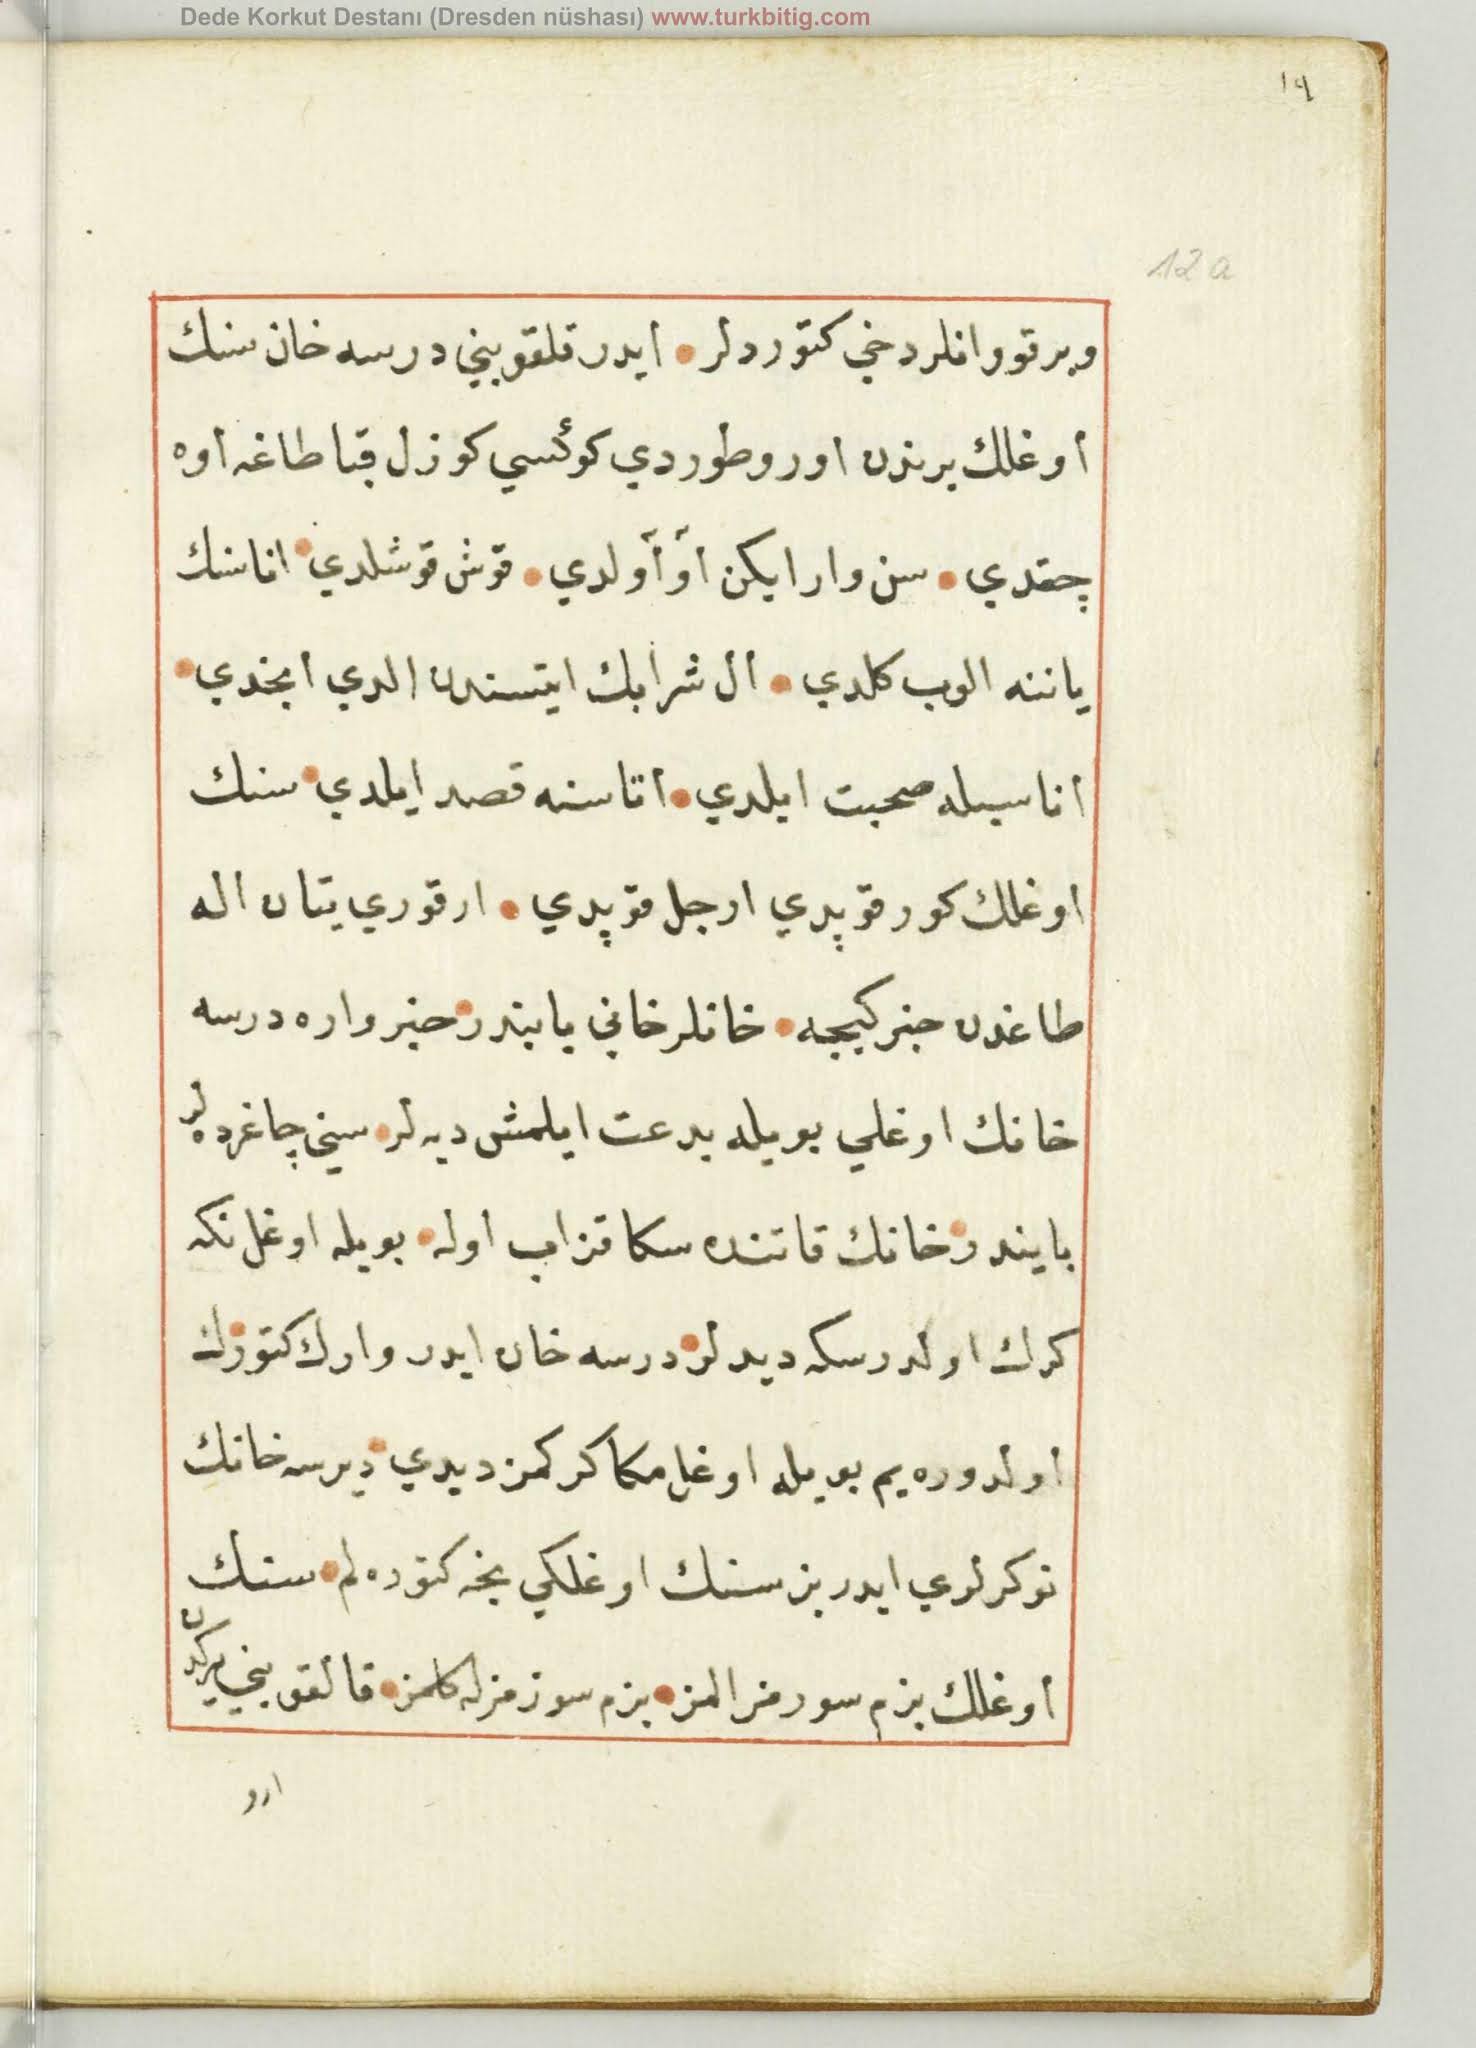 Dede Korkut Destanı (Dresden nüshası) www.turkbitig.com
١٩
12a
وبرقوو انلر دخي كتوردلر • ايدر قلقوبني درسه خان سنك
اوغلك يرندن اورو طوردي كوكسي كوزل قبا طاغه اوه
چقدي • سن وار ايكن أو أولدي • قوش قوشلدي • اناسنك
ياننه الوب كلدي • ال شرابك ايتسندن الدي ايچدي •
اناسيله صحبت ايلدي • اتاسنه قصد ايلدي • سنك
اوغلك كور قوپدي ارجل قوپدي • ارقوري يتان اله
طاغدن خبر كيچه • خانلر خاني بايندر • خبر واره درسه
خانك اوغلي بويله بدعت ايلمش ديه لر • سني چاغرده لر
بايندر • خانك قاتنده سكا قزاب اوله • بويله اوغل نكه
كرك اولدرسكه ديدلر • درسه خان ايدر وارك كتورك
اولدوره يم بويله اوغل مكا كركمز ديدي • ديرسه خانك
نوكرلري ايدر بز سنك اوغلكي نجه كتوره لم • سنك
اوغلك بزم سوزمز المز • بزم سوزمزله كلمز • قالقوبني يركدن
ارو